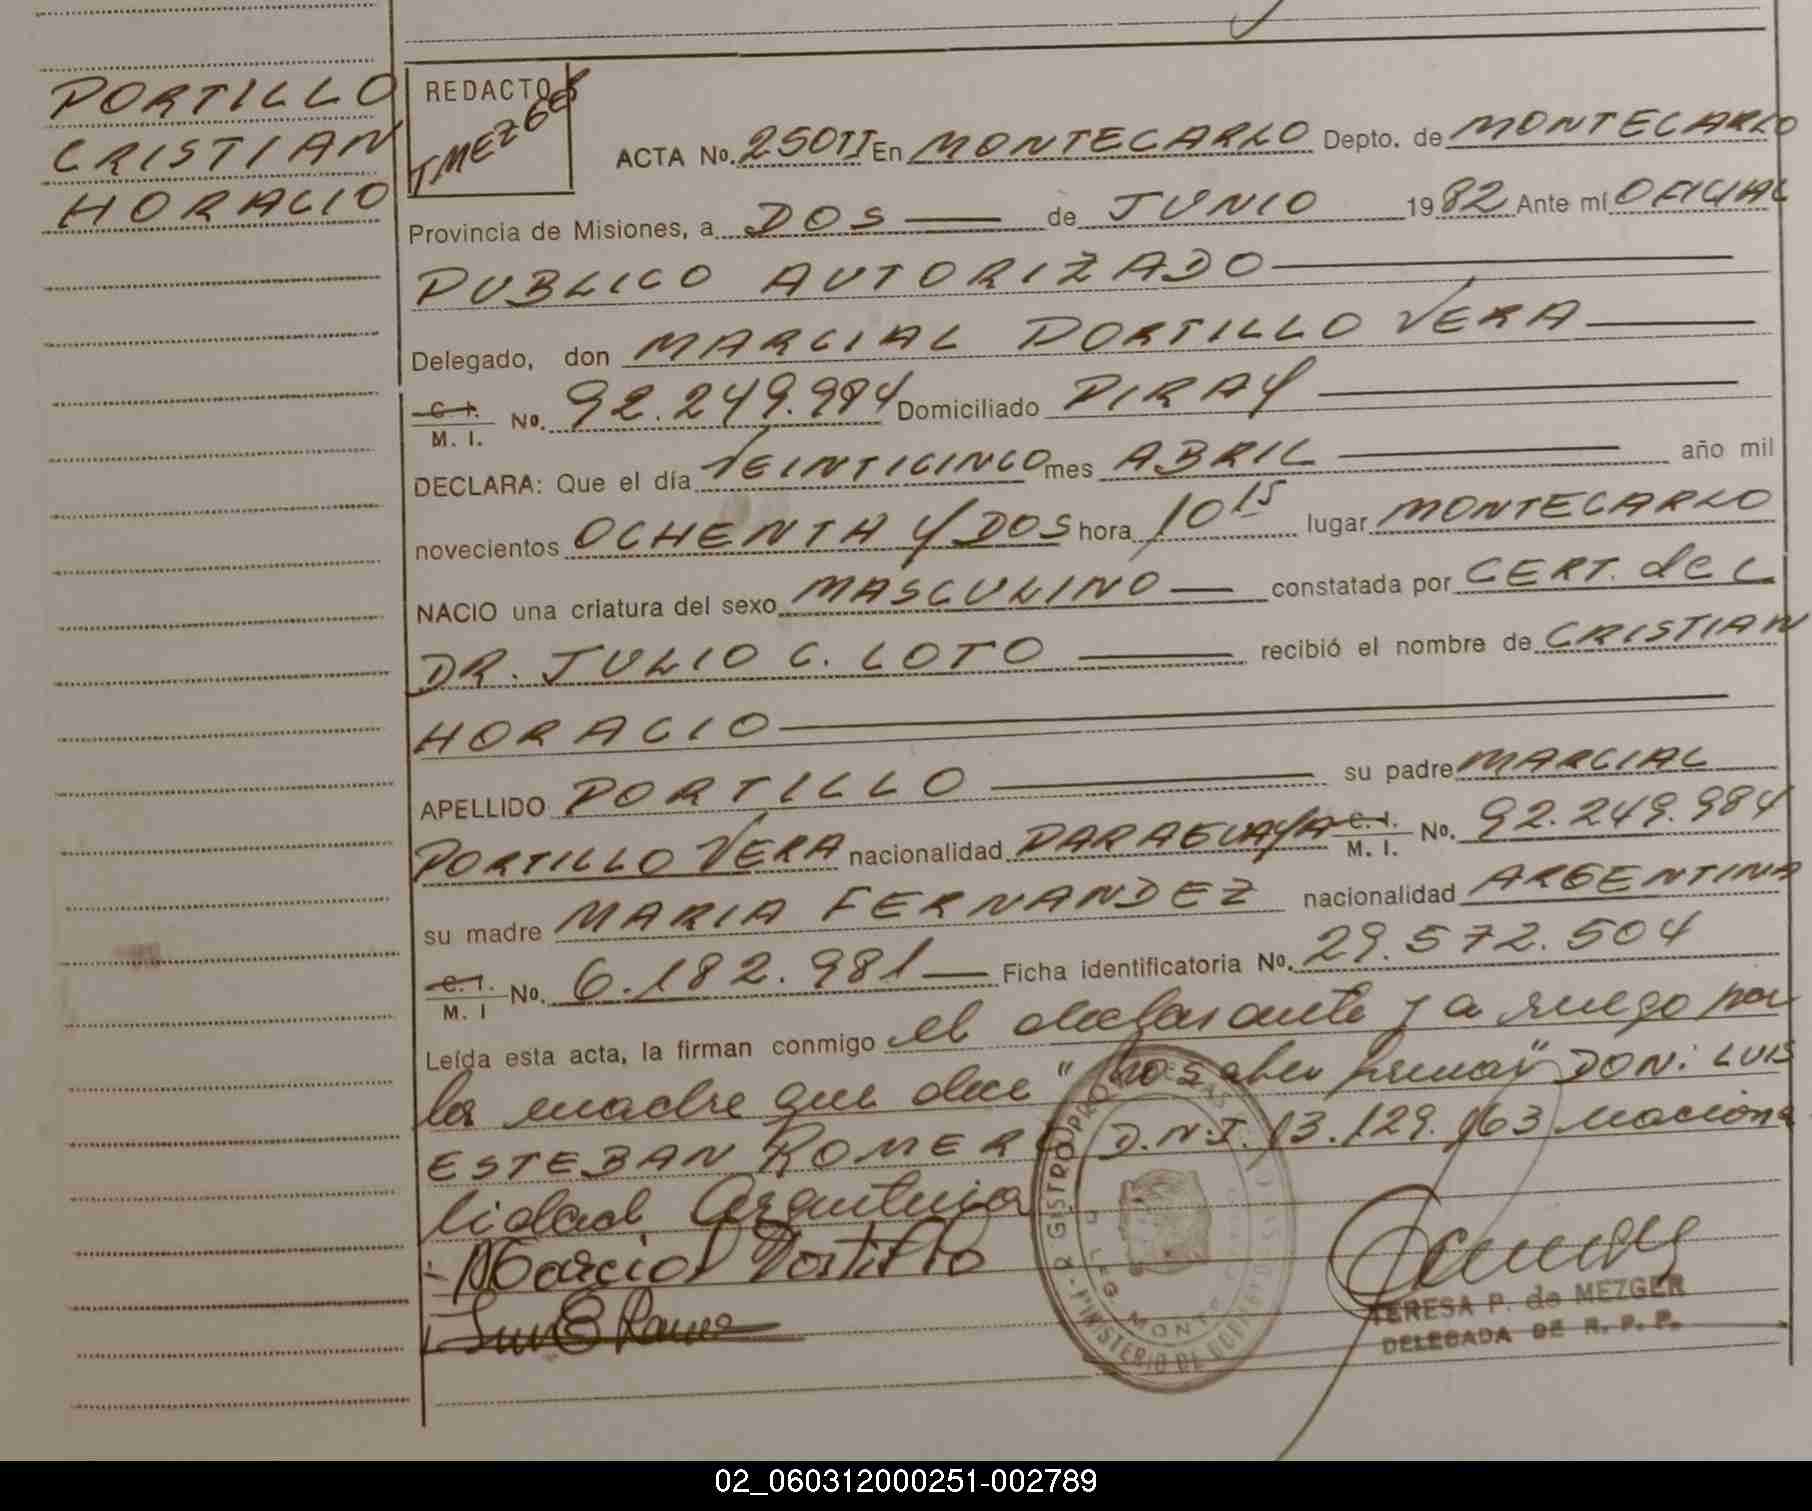 PORTILLO
CRISTIAN
HORACIO
REDACTO
TMEZGER
ACTA No. 250 II En MONTECARLO Depto. de MONTECARLO
Provincia de Misiones, a DOS de JUNIO 1982 Ante mí OFICIAL
PUBLICO AUTORIZADO
Delegado, don MARCIAL PORTILLO VERA
C. I.
M. I. No. 92.249.984 Domiciliado PIRAY
DECLARA: Que el día VEINTICINCO mes ABRIL año mil
novecientos OCHENTA Y DOS hora 10 15 lugar MONTECARLO
NACIO una criatura del sexo MASCULINO constatada por CERT. del
DR. JULIO C. LOTO recibió el nombre de CRISTIAN
HORACIO
APELLIDO PORTILLO su padre MARCIAL
PORTILLO VERA nacionalidad PARAGUAYA C. I. M. I. No. 92.249.984
su madre MARIA FERNANDEZ nacionalidad ARGENTINA
C. I. M. I No. 6.182.981 Ficha identificatoria No. 29.572.504
Leída esta acta, la firman conmigo el declarante y a ruego por
la madre que dice "no saber firmar" DON: LUIS
ESTEBAN ROMERO D.N.I. 13.129.163 naciona
lidad Argentina
Marcial Portillo
TERESA P. de MEZGER
DELEGADA DE R. P. P.
MINISTERIO DE GOBIERNO
02_060312000251-002789